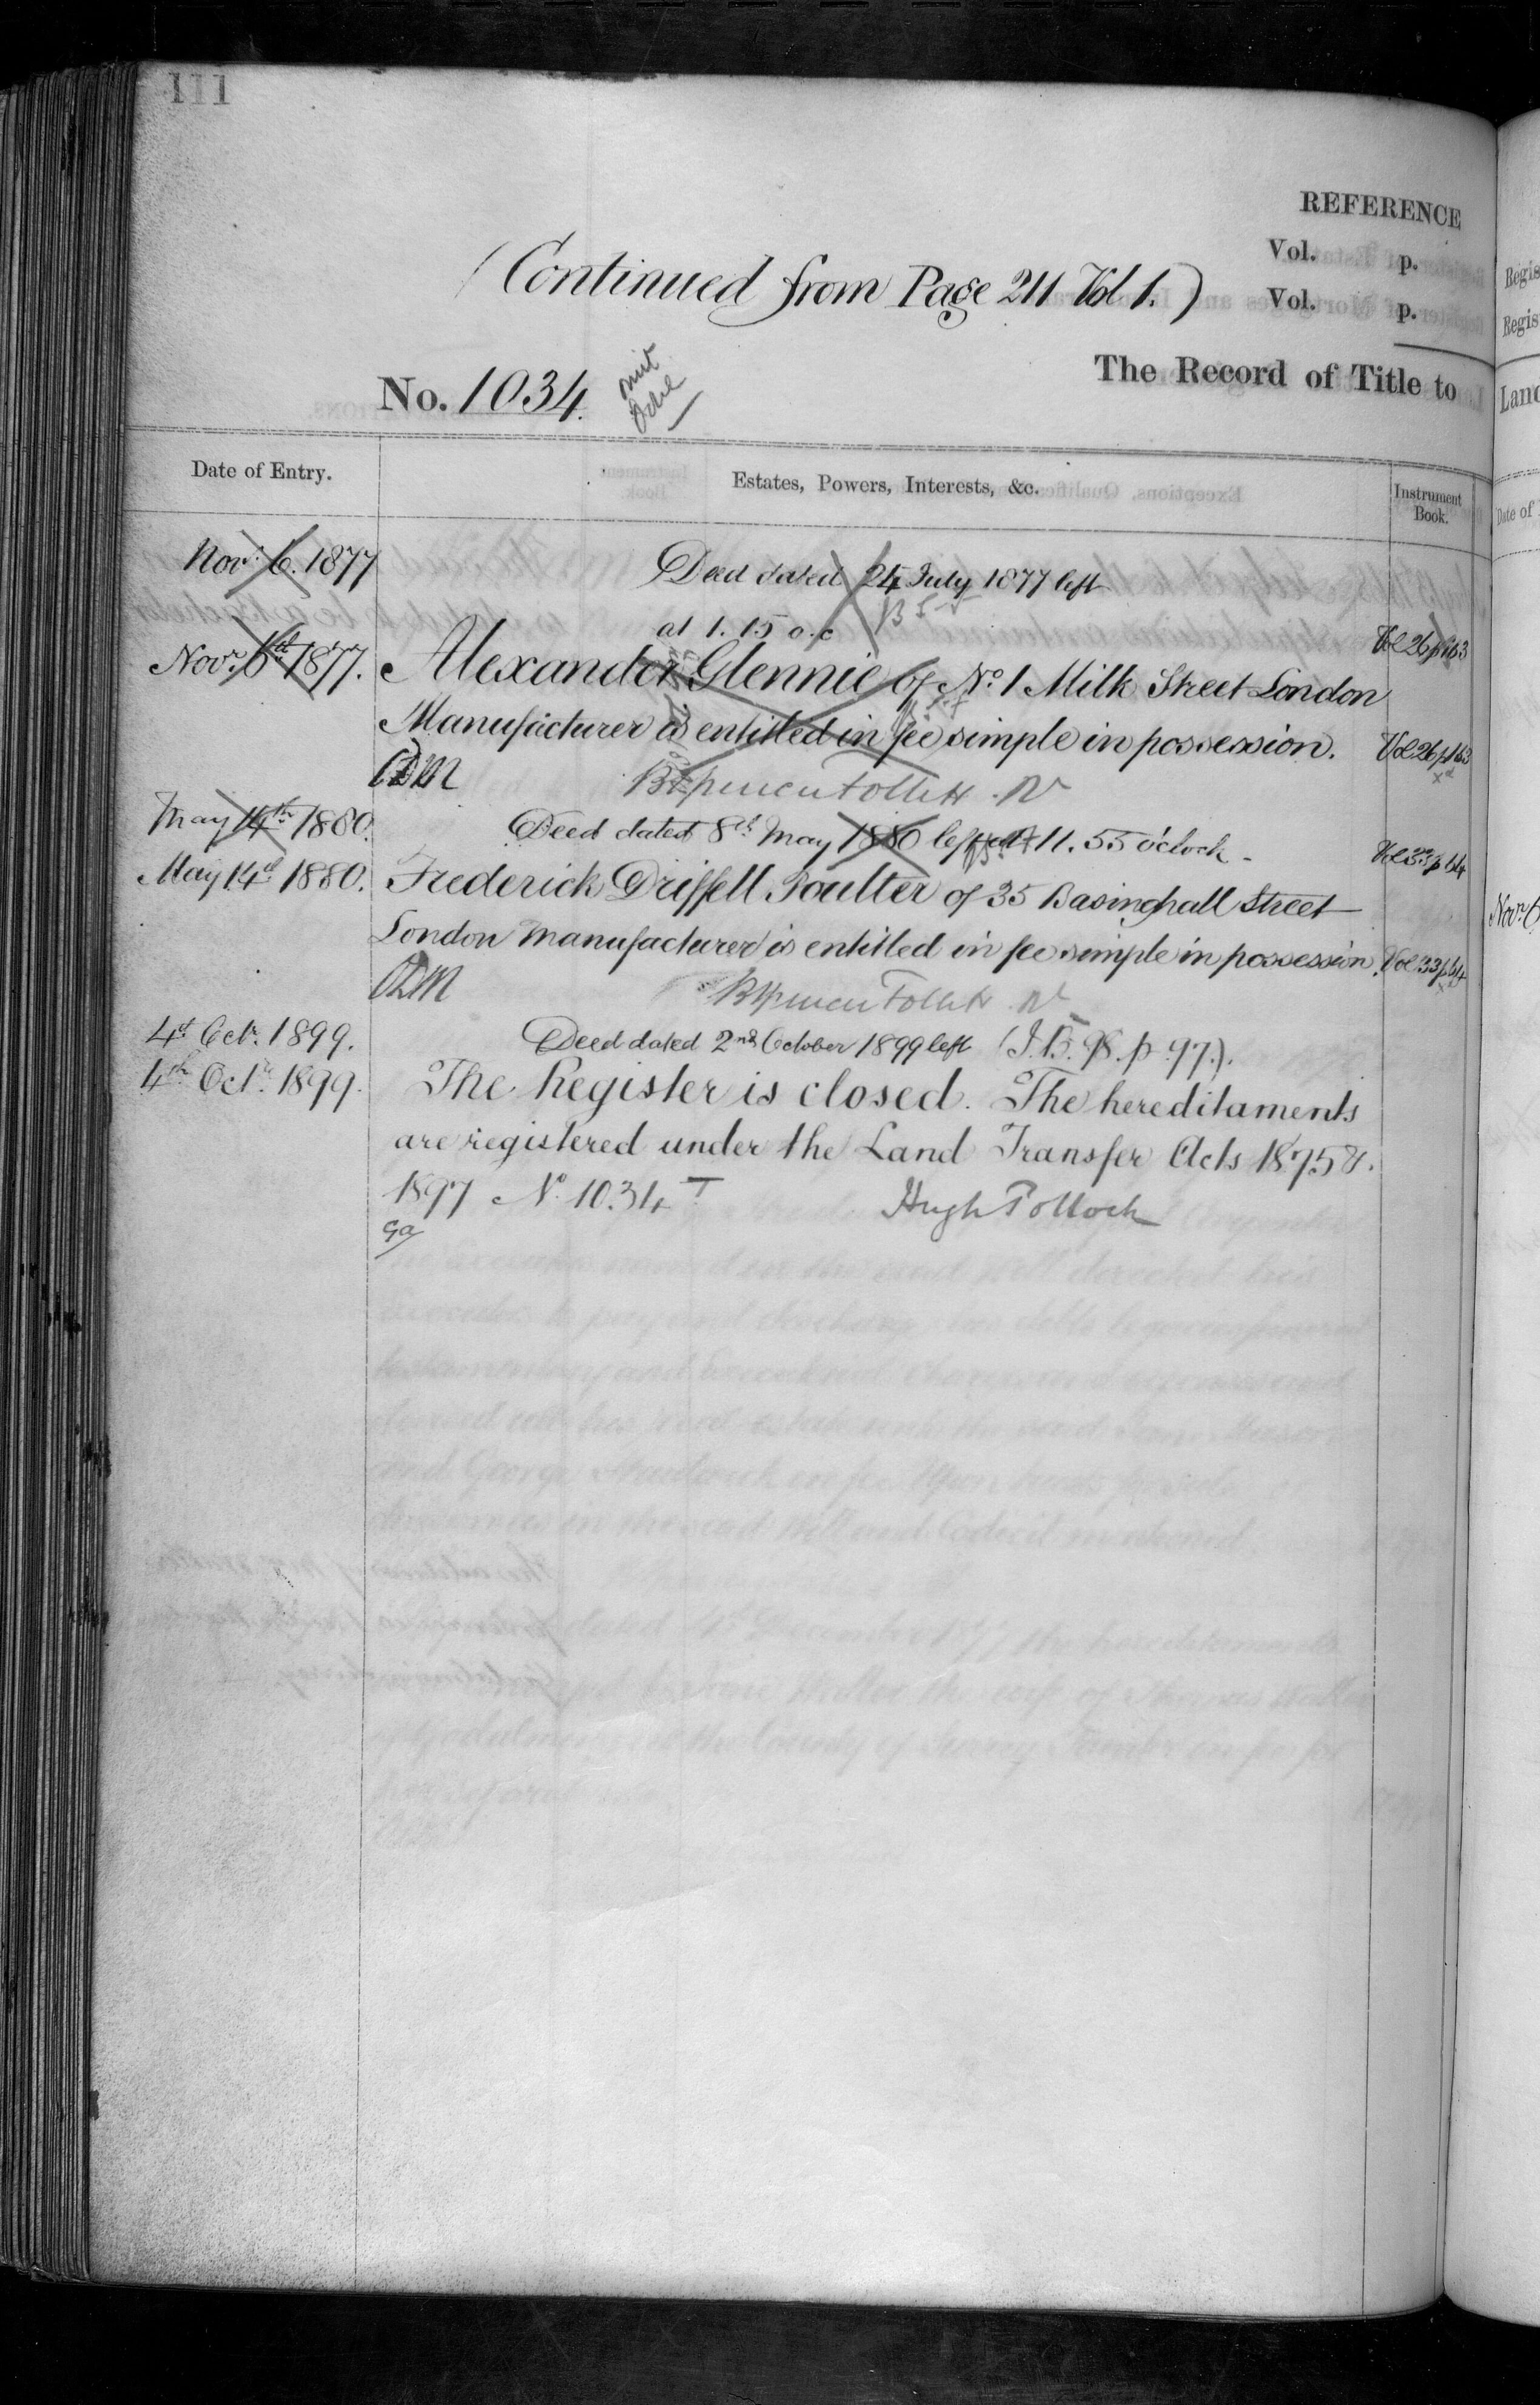 111
REFERENCE
Vol. p.
(Continued from Page 211 Vol 1.)
Vol. p.
The Record of Title to
No. 1034.
Date of Entry.
Estates, Powers, Interests, &c.
Instrument Book.
Novr. 6. 1877 Deed dated 24 July 1877 left
at 1.15 o.c Vol 26 p 163
Novr. 6th 1877. Alexander Glennie of No. 1 Milk Street London
Manufacturer is entitled in fee simple in possession. Vol 26 p 163
May 14th 1880. Deed dated 8th May 1880 left at 11.55 o'clock - Vol 33 p 44
May 14th 1880. Frederick Driffell Poulter of 35 Basinghall Street
London Manufacturer is entitled in fee simple in possession. Vol 33 p 44
4th Octr. 1899. Deed dated 2nd October 1899 left (I.B. 98. p. 97.).
4th Octr. 1899. The Register is closed. The hereditaments
are registered under the Land Transfer Acts 1875 &
1897 No. 1034 T Hugh Pollock
Regis
Regis
Land
Date of
Novr 6